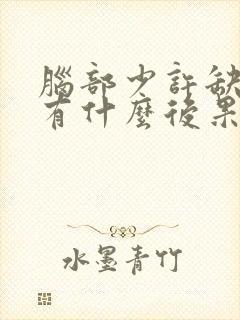 腦部少許缺
有什麼後果
水墨青竹